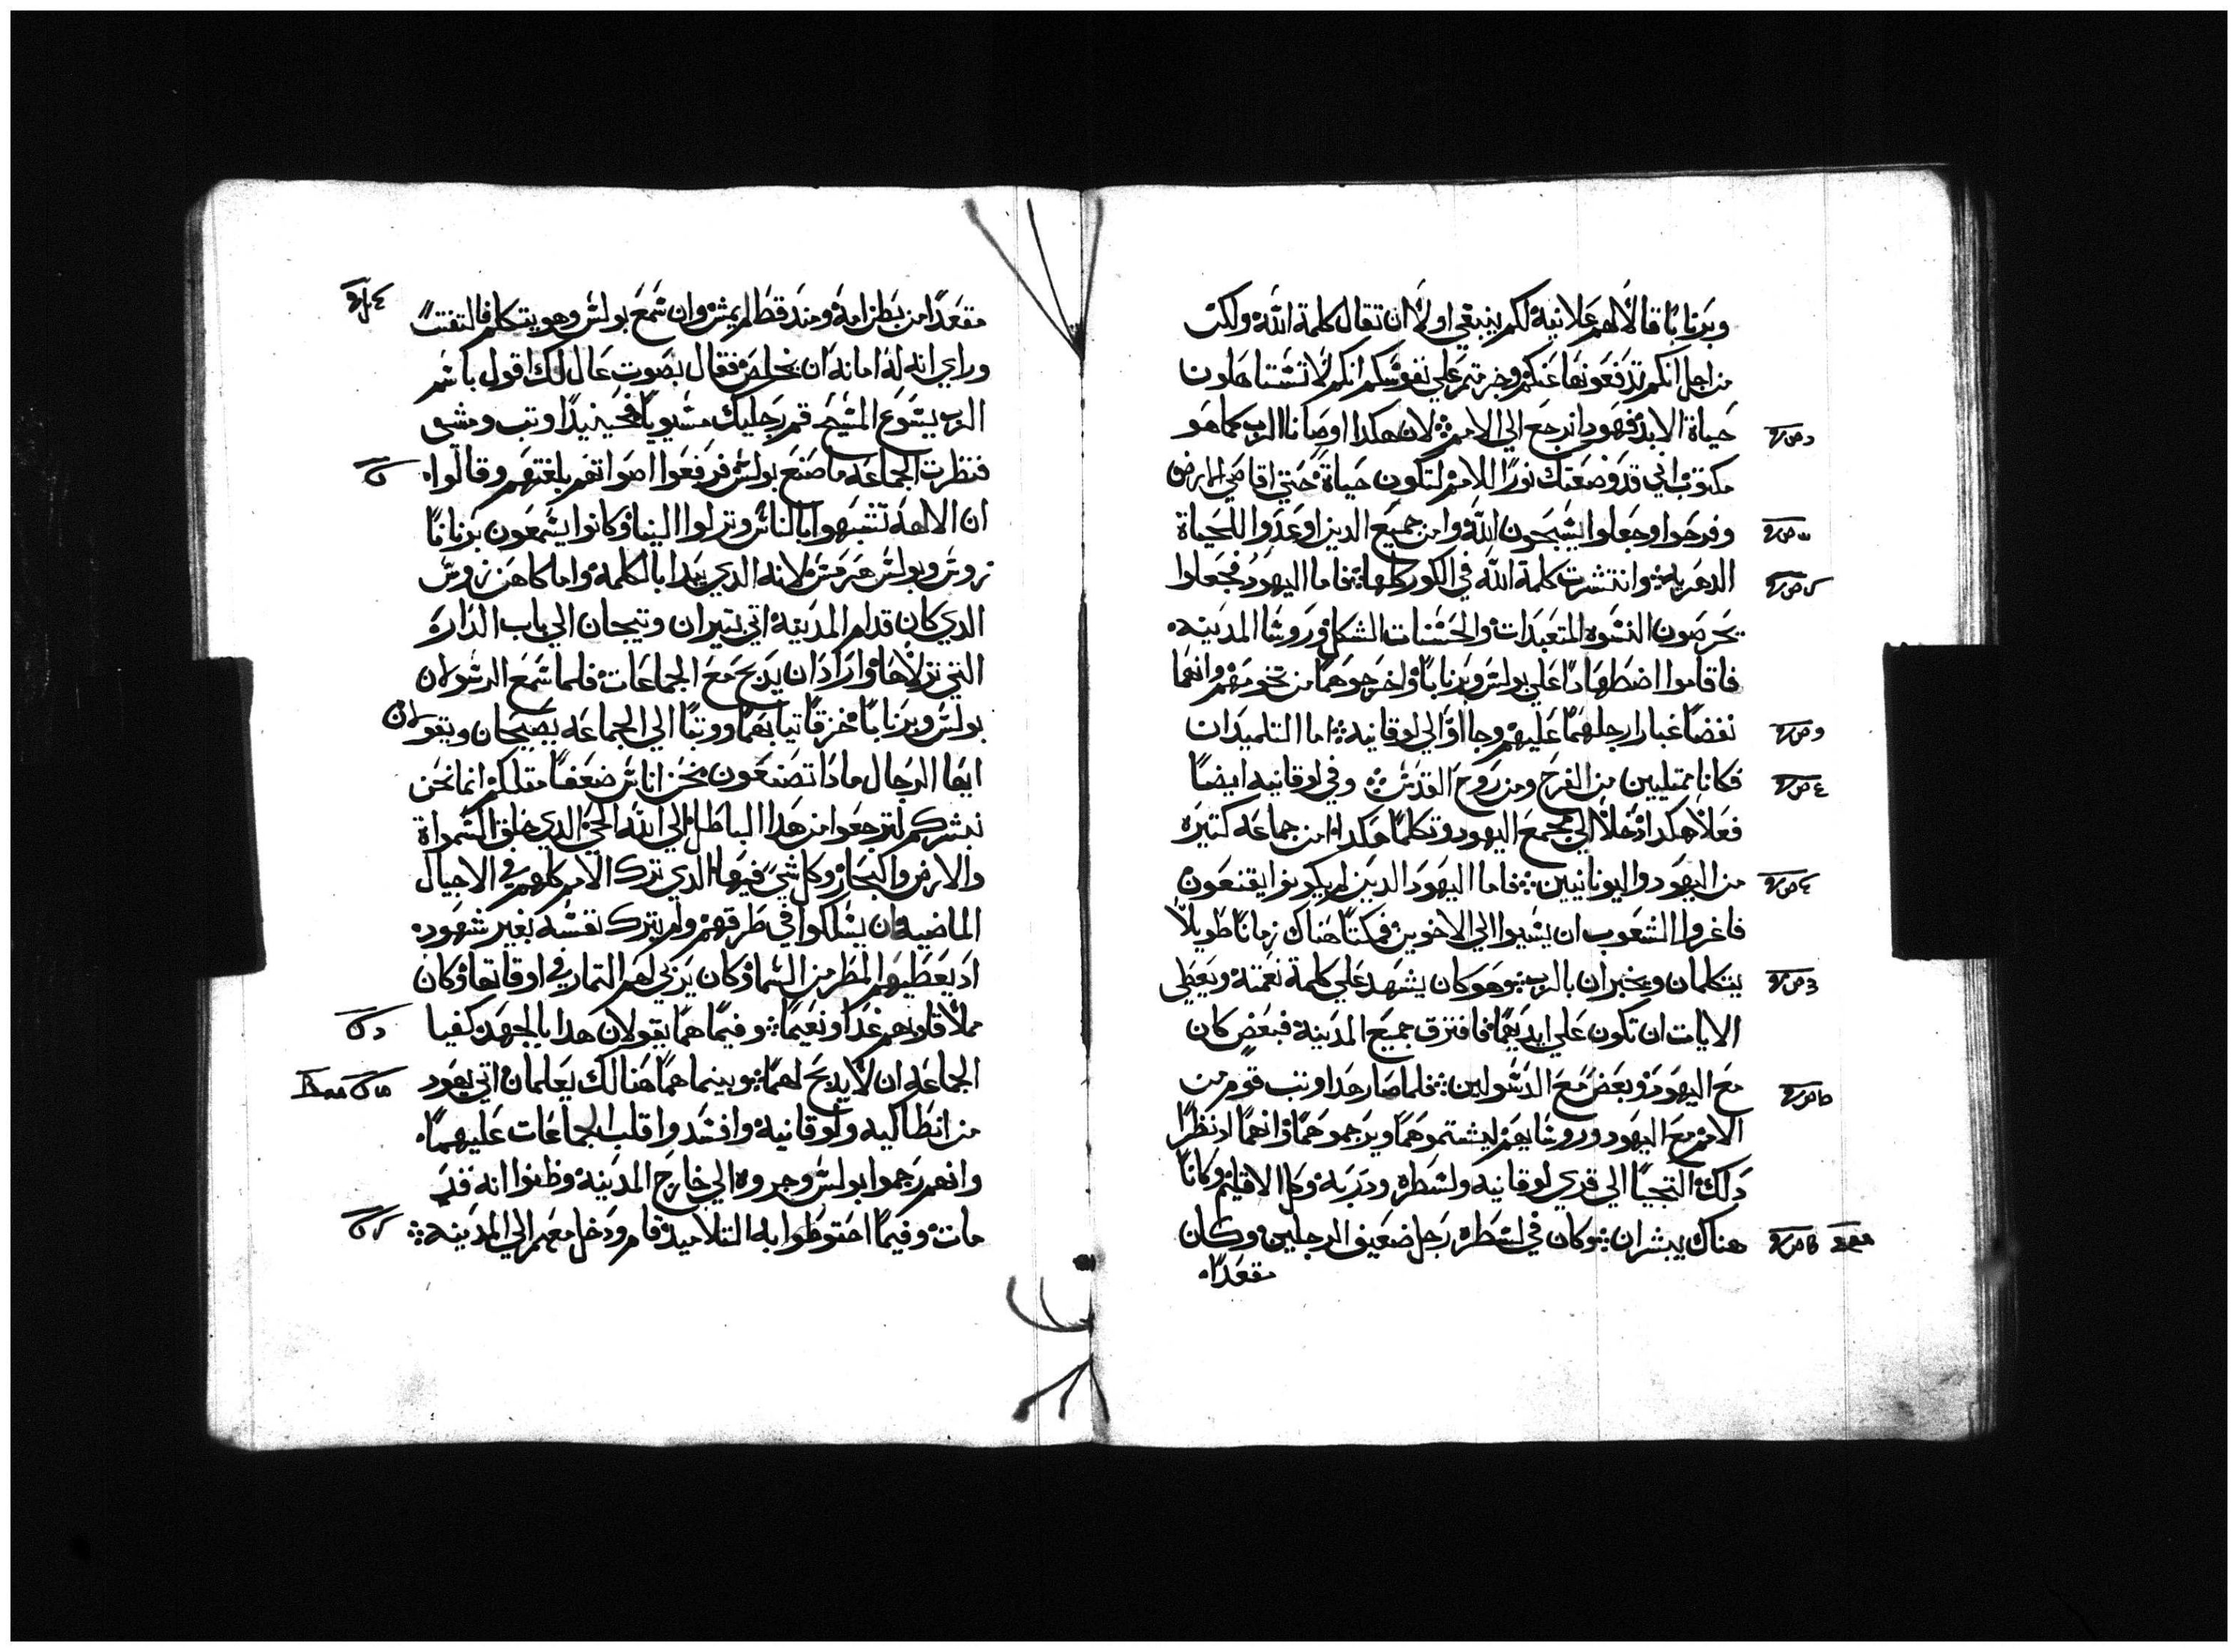 وبرنابا قالا لهم علانية لكم ينبغي اولا ان تقال كلمة الله ولكن
من اجل انكم تدفعونها عنكم وجزمتم علي نفوسكم انكم لا تستاهلون
حياة الابد فهودا نرجع الي الامم لان هكدا اوصانا الرب كما هو
مكتوب اني قد وضعتك نورا للامم لتكون حياة حتي اقاصي الارض
وفرحوا وجعلوا يسبحون الله وامن جميع الدين اوعدوا للحياة
الدهريه وانتشرت كلمة الله في الكور كلها فاما اليهود فجعلوا
يحرصون النسوه المتعبدات والحسنات الشكل وروسا المدينه
فاقاموا اضطهادا علي بولس وبرنابا واخرجوهما من تخومهم وانهما
نفضا غبار ارجلهما عليهم وجااوا الي لوقانيه اما التلميدان
فكانا ممتليين من الفرح ومن روح القدس وفي لوقانيه ايضا
فعلا هكدا دخلا الي مجمع اليهود وتكلما هكدا امن جماعه كتيره
من اليهود واليونانيين فاما اليهود الدين لم يكونوا يقنعون
فاغروا الشعوب ان يسيوا الي الاخوين فمكتا هناك زمانا طويلا
يتكلمان ويخبران بالرب وهو كان يشهد علي كلمة نعمته ويعطي
الايات ان تكون علي ايديهما فافترق جميع المدينة فبعض كان
مع اليهود وبعض مع الرسولين فلما صار هدا وتب قوم من
الامم مع اليهود وروسايهم ليشتموهما ويرجموهما وانهما اد نظرا
دلك التجيا الي قري لوقانيه ولسطره ودربه وكل الاقليم وكانا
هناك يبشران وكان في لسطره رجل ضعيف الرجلين وكان
مقعدا
مقعدا من بطن امه ومند قط لم يمش وان سمع بولس وهو يتكلم فالتفت
وراي انه له امانه ان يخلص فقال بصوت عال لك اقول باسم
الرب يسوع المسيح قم رجليك مستويا فحينيدا وتب ومشى
فنظرت الجماعه ما صنع بولس فرفعوا اصواتهم بلغتهم وقالوا
ان الالهه تشبهوا بالناس ونزلوا الينا وكانوا يسمون برنابا
زوس وبولس هرمس لانه الدي يبدا بالكلمه واما كاهن زوس
الدي كان قدام المدينة اتي بتيران وتيجان الي باب الداره
التي نزلاها واراد ان يدبح مع الجماعات فلما سمع الرسولان
بولس وبرنابا مزقا تيابهما ووتبا الي الجماعه يصيحان ويقولان
ايها الرجال مادا تصنعون نحن اناس ضعفا متلكم انما نحن
نبشركم لترجعوا من هدا الباطل الي الله الحي الدي خلق السموات
والارض والبحار وكل شي فيها الدي ترك الامم كلهم في الاجيال
الماضيه ان يسلكوا في طرقهم ولم يترك نفسه بغير شهود
اد يعطيهم المطر من السما وكان يزكي لهم التمار في اوقاتها وكان
ملا قلوبهم غدا ونعيما وفيما هما يقولان هدا بالجهد كفيا
الجماعه ان لا يدبح لهما وبينما هما هنالك يعلمان اتي يهود
من انطاكيه ولوقانيه وافسدوا قلب الجماعات عليهما
وانهم رجموا بولس وجروه الي خارج المدينه وظنوا انه قد
مات وفيما احتوطوا به التلاميد قام ودخل معهم الي المدينه